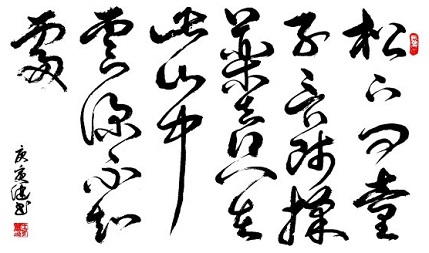 松下問童
子言師採
藥去只在
此山中
雲深不知
處
庚寅